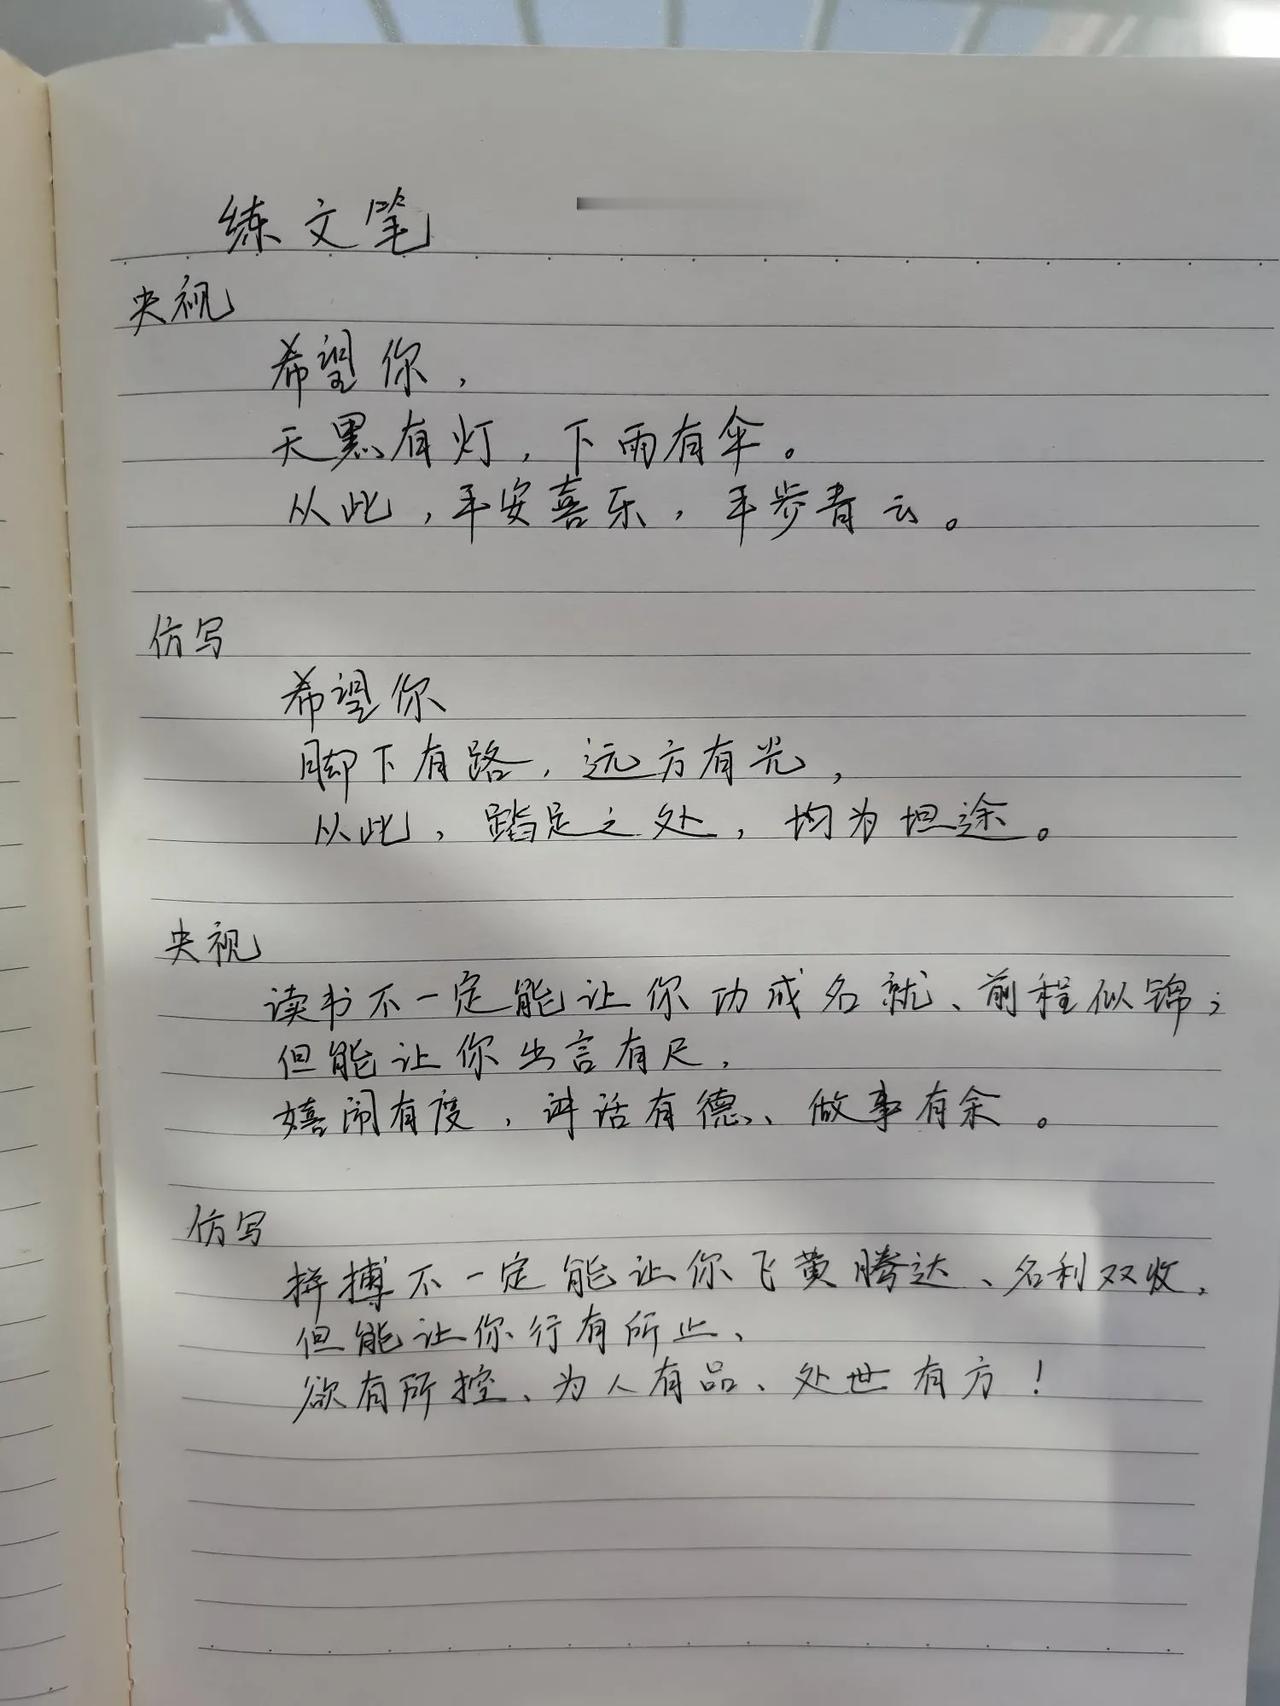 练文笔
央视
希望你，
天黑有灯，下雨有伞。
从此，平安喜乐，平步青云。
仿写
希望你
脚下有路，远方有光，
从此，踏足之处，均为坦途。
央视
读书不一定能让你功成名就、前程似锦；
但能让你出言有尺，
嬉闹有度，讲话有德、做事有余。
仿写
拼搏不一定能让你飞黄腾达、名利双收，
但能让你行有所止、
欲有所控、为人有品、处世有方！